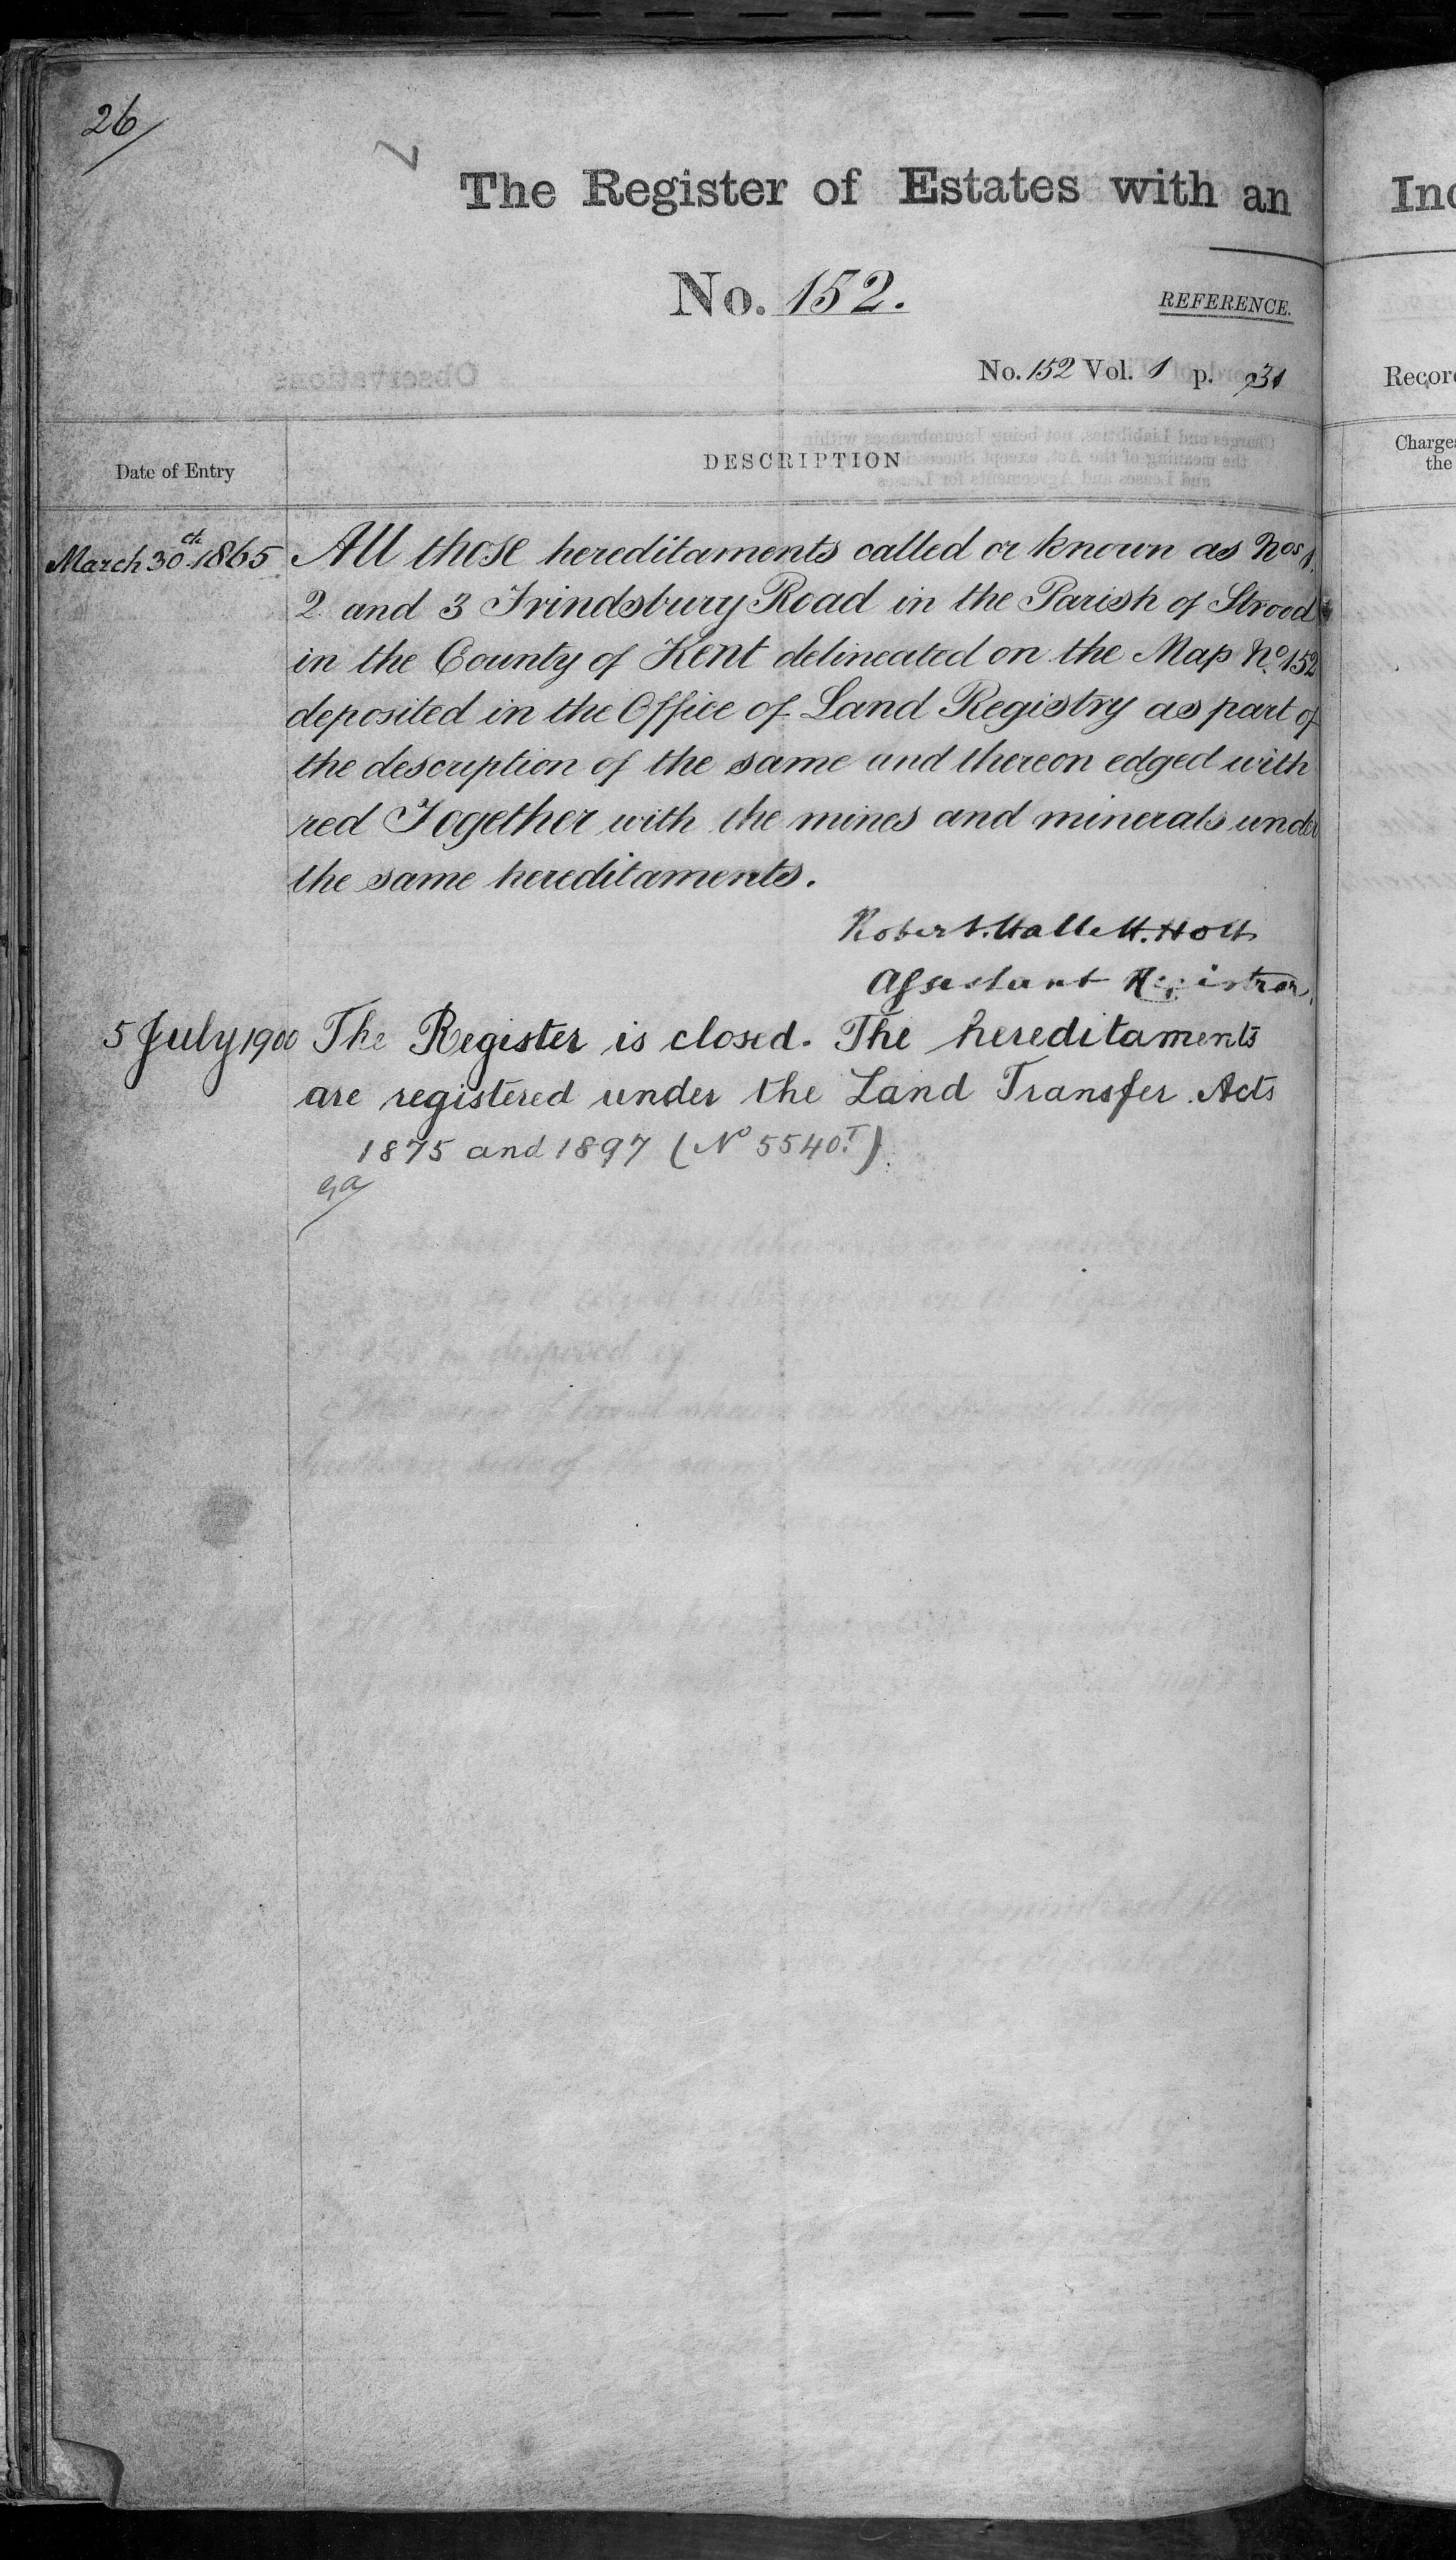 26/
The Register of Estates with an
No. 152.
REFERENCE.
No. 152 Vol. 1 p. 231
Date of Entry
DESCRIPTION
March 30th 1865 All those hereditaments called or known as Nos 1.
2 and 3 Frindsbury Road in the Parish of Strood
in the County of Kent delineated on the Map No. 152
deposited in the Office of Land Registry as part of
the description of the same and thereon edged with
red Together with the mines and minerals under
the same hereditaments.
Robert Hallett Holt
Assistant Registrar.
5 July 1900 The Register is closed. The hereditaments
are registered under the Land Transfer Acts
1875 and 1897 (No 5540.T).
Recor
Charge
the